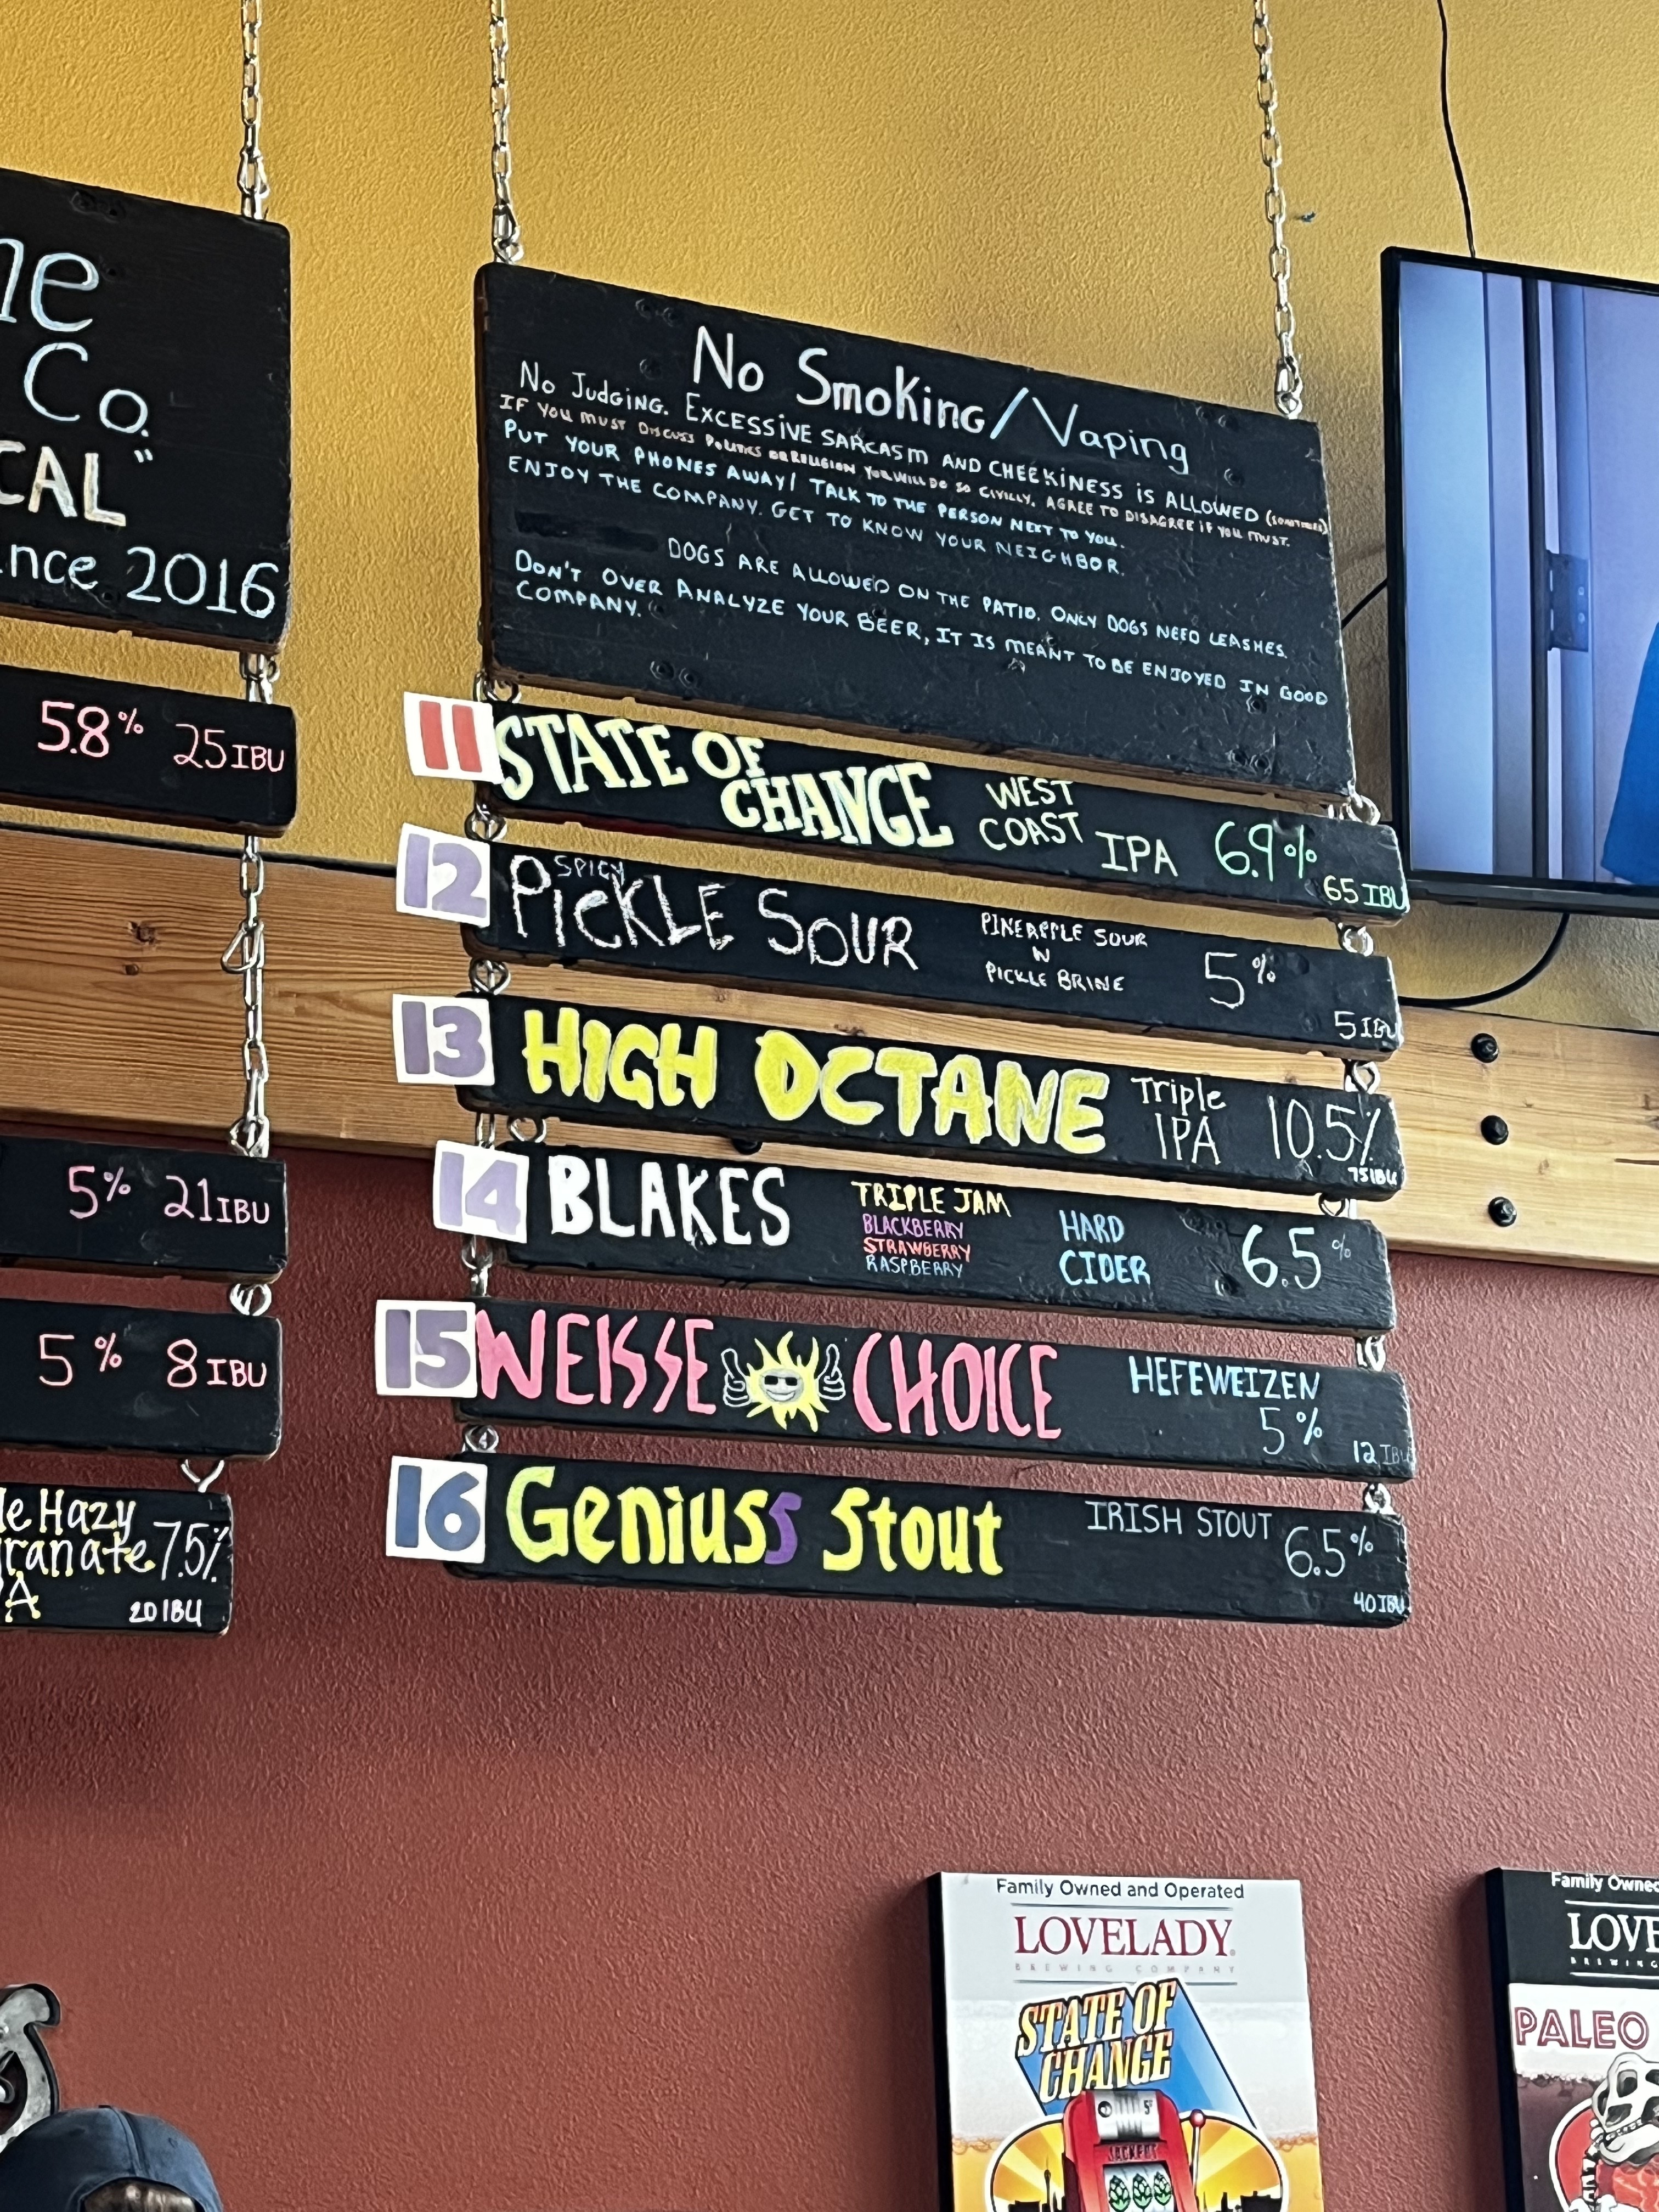 ne
Co.
CAL"
nce 2016
5.8% 25 IBU
5% 21 IBU
5% 8 IBU
le Hazy
granate 7.5%
PA
20 IBU
No Smoking/Vaping
No Judging. Excessive sarcasm and cheekiness is allowed (sometimes)
If you must discuss politics or religion you will do so civilly. Agree to disagree if you must.
Put your phones away! Talk to the person next to you.
Enjoy the company. Get to know your neighbor.
Dogs are allowed on the patio. Only dogs need leashes.
Don't over analyze your beer, it is meant to be enjoyed in good
company.
11 STATE OF CHANGE WEST COAST IPA 6.9% 65 IBU
12 SPICY PICKLE SOUR PINEAPPLE SOUR N PICKLE BRINE 5% 5 IBU
13 HIGH OCTANE Triple IPA 10.5% 75 IBU
14 BLAKES TRIPLE JAM BLACKBERRY STRAWBERRY RASPBERRY HARD CIDER 6.5%
15 WEISSE CHOICE HEFEWEIZEN 5% 12 IBU
16 Geniuss Stout IRISH STOUT 6.5% 40 IBU
Family Owned and Operated
LOVELADY
BREWING COMPANY
STATE OF
CHANGE
5¢
JACKPOT
Family Owned
LOVE
BREWING
PALEO